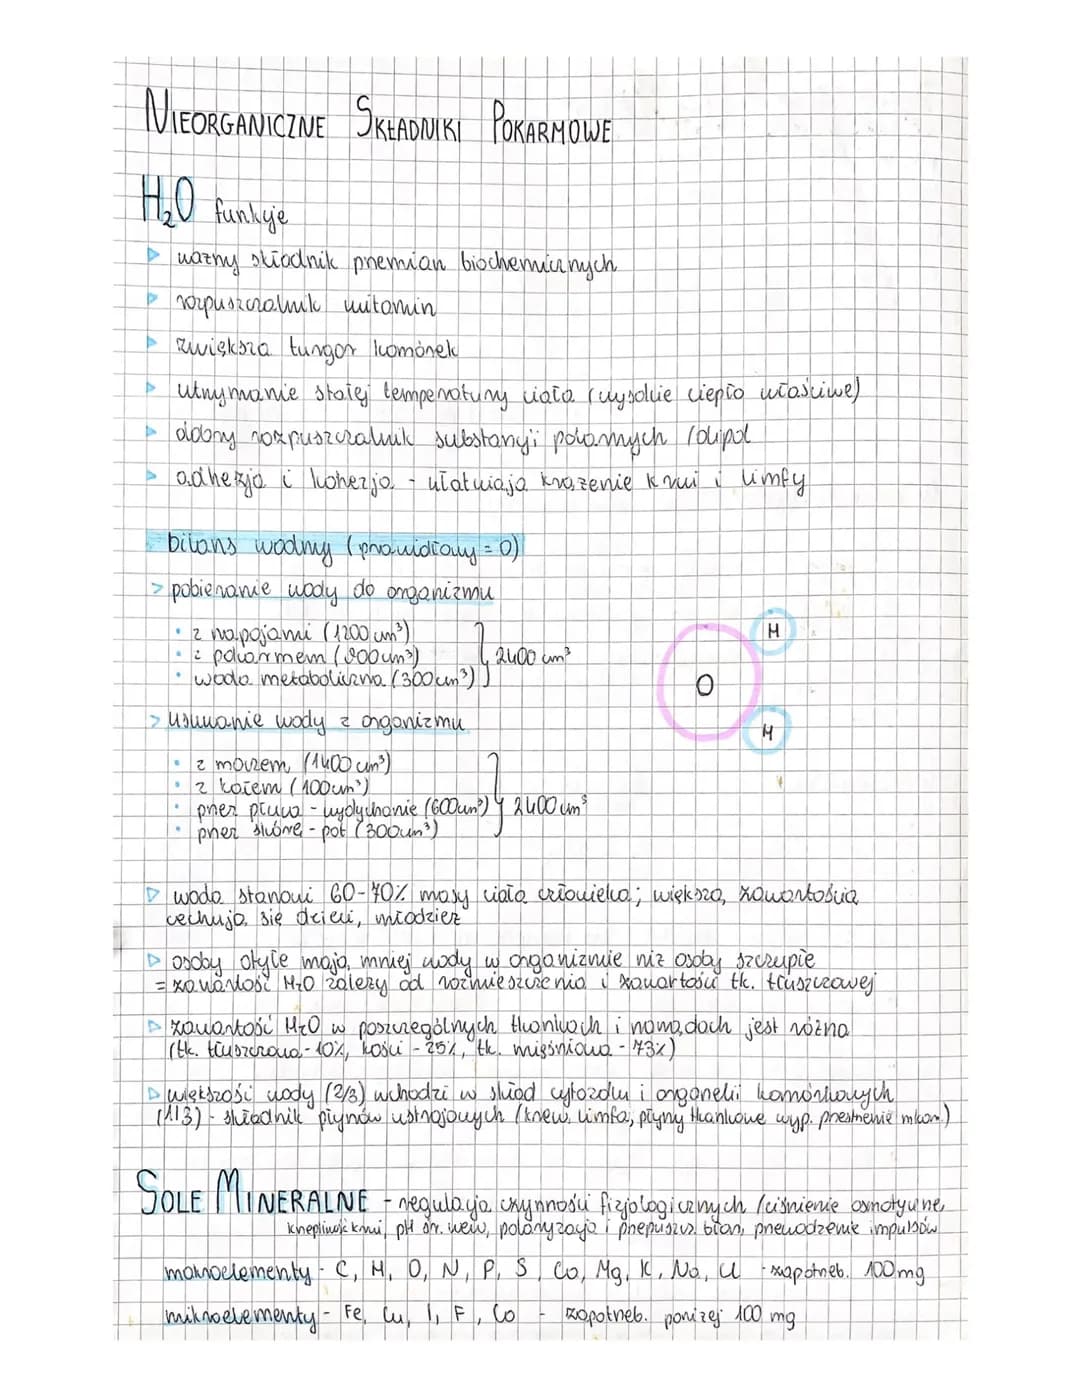 NIEORGANICZNE SKŁADNIKI POKARMOWE
H₂O funkcje
▷ ważny składnik przemian biochemicznych
▷ rozpuszczalnik witamin
▷ zwiększa turgor komórek
▷ utrzymanie stałej temperatury ciała (wysokie ciepło właściwe)
▷ dobry rozpuszczalnik substancji polarnych /dipol
▷ adhezja i kohezja - ułatwiają krążenie krwi i limfy
bilans wodny (prawidłowy = 0)
> pobieranie wody do organizmu
• z napojami (1200 cm³)
• z pokarmem (900 cm³) } 2400 cm³
• woda metaboliczna (300 cm³)
O H H
> usuwanie wody z organizmu
• z moczem (1400 cm³)
• z kałem (100 cm³)
• przez płuca - wydychanie (600 cm³) } 2400 cm³
• przez skórę - pot (300 cm³)
▷ woda stanowi 60-70% masy ciała człowieka; większą zawartością
cechują się dzieci, młodzież
▷ osoby otyłe mają mniej wody w organizmie niż osoby szczupłe
= zawartość H₂O zależy od rozmieszczenia i zawartości tk. tłuszczowej
▷ zawartość H₂O w poszczególnych tkankach i narządach jest różna
(tk. tłuszczowa - 10%, kości - 25%, tk. mięśniowa - 73%)
▷ większość wody (2/3) wchodzi w skład cytozolu i organelli komórkowych
(1/3) - składnik płynów ustrojowych (krew, limfa, płyny tkankowe wyp. przestrzenie mkom.)
SOLE MINERALNE - regulacja czynności fizjologicznych /ciśnienie osmotyczne,
krzepliwość krwi, pH śr. wew, polaryzacja i przepuszcz. błon, przewodzenie impulsów
makroelementy - C, H, O, N, P, S, Ca, Mg, K, Na, Cl - zapotrzeb. 100 mg
mikroelementy - Fe, Cu, I, F, Co - zapotrzeb. poniżej 100 mg